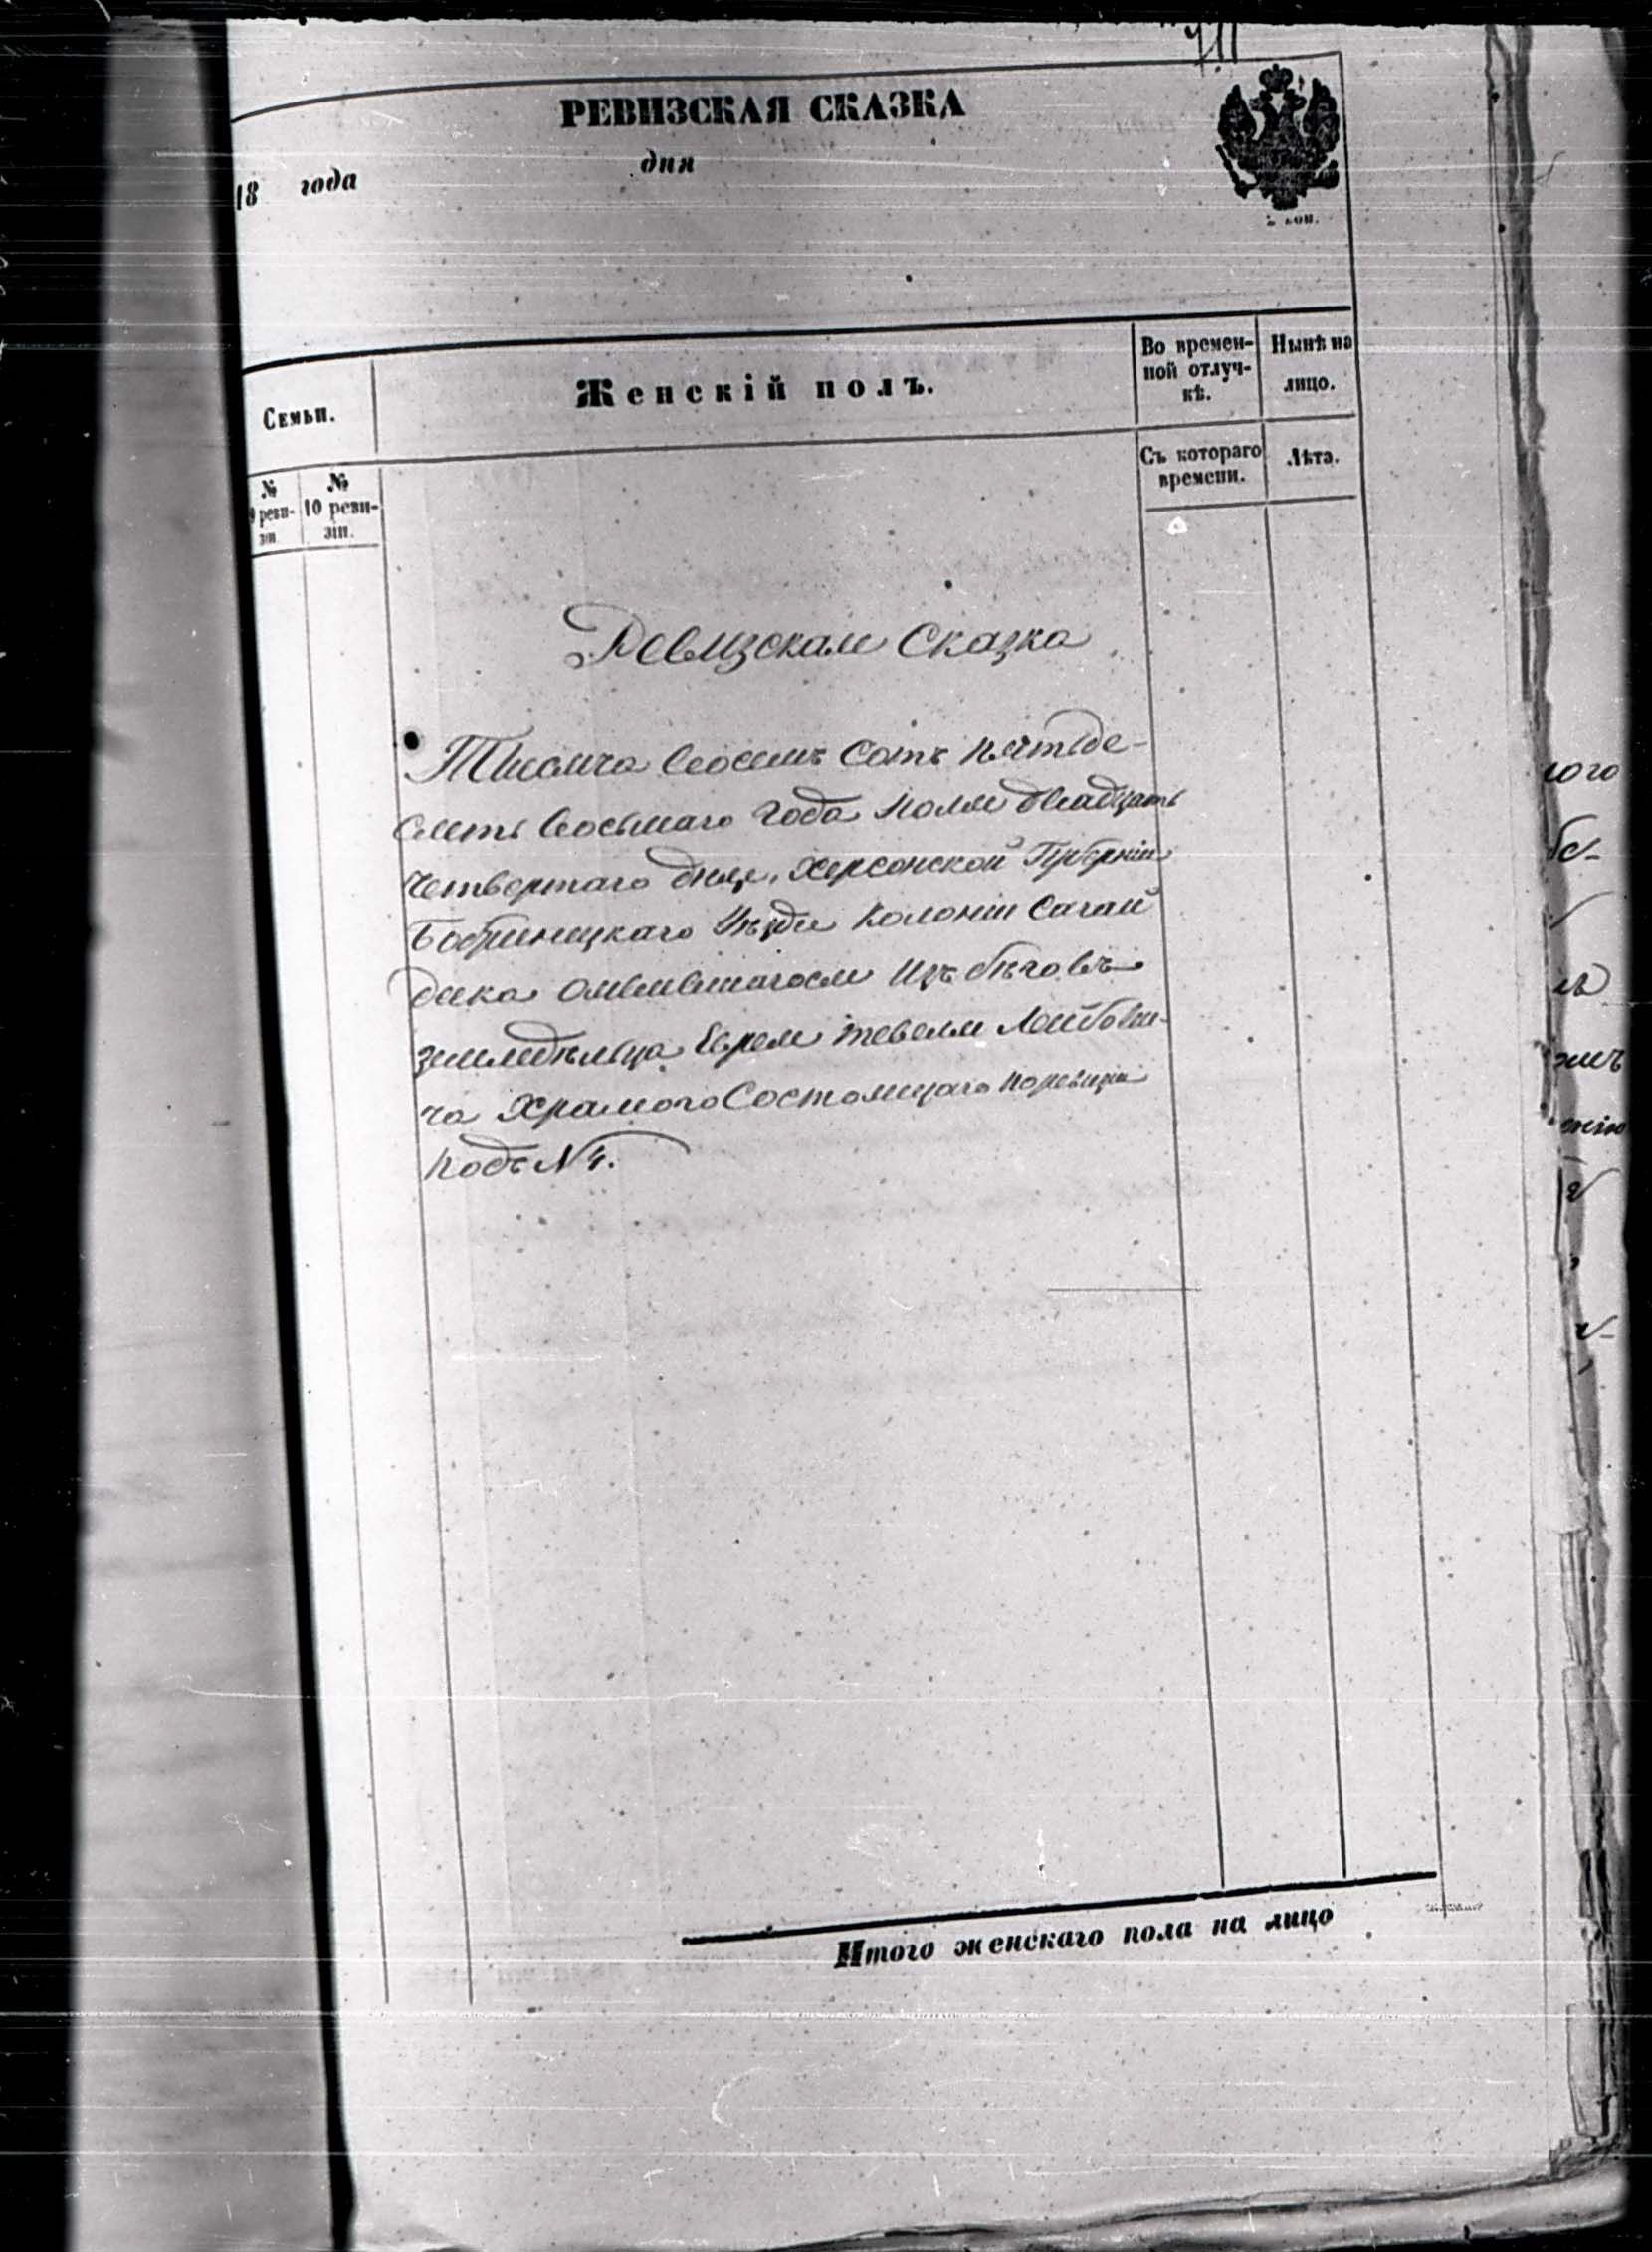 РЕВИЗСКАЯ СКАЗКА
18 года дня
2 коп.
Семьи.
Женскій полъ.
Во времен-
ной отлуч-
кѣ.
Нынѣ на
лицо.
Съ котораго
времени.
Лѣта.
№
9 реви-
зіи
№
10 реви-
зіи.
Ревизская Сказка
Тысяча восемъ сотъ пятьде-
сятъ восьмаго года Іюля двадцать
четвертаго дня, Херсонской Губерніи
Бобринецкаго Уѣзда Колоніи Сагай
дака явившагося изъ бѣговъ
земледѣльца Еврея Тевеля Лейбови-
ча Храмого Состоящаго по ревизіи
подъ №4.
Итого женскаго пола на лицо